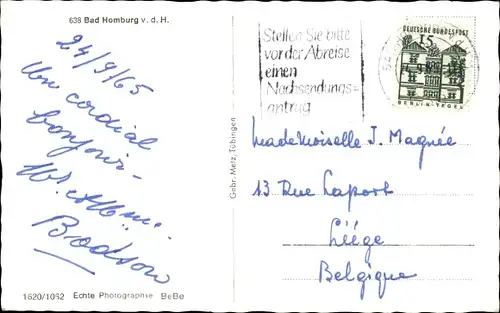 638 Bad Homburg v. d. H.
24/9/65
Un cordial
bonjour.
Mr et Mme
Bodson
1620/1062 Echte Photographie BeBe
Gebr. Metz, Tübingen
Stellen Sie bitte
vor der Abreise
einen
Nachsendungs=
antrag
DEUTSCHE BUNDESPOST
15
BERLIN-TEGEL
Mademoiselle J. Magnée
13 Rue Laport
Liége
Belgique